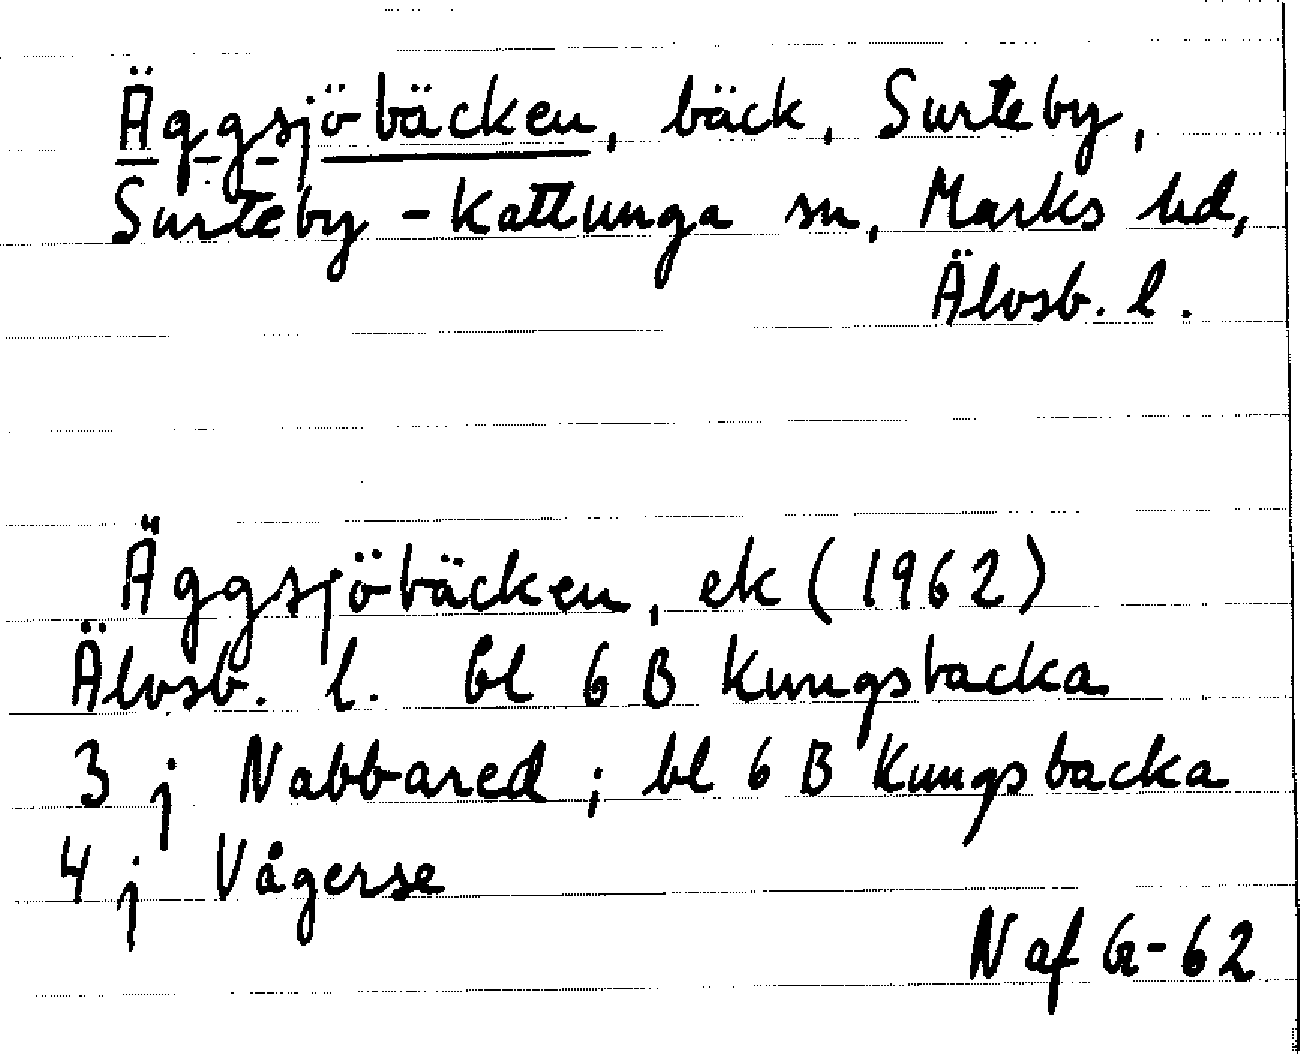 Äggsjöbäcken, bäck, Surteby,
Surteby-Kattunga sn, Marks hd,
Älvsb. l.
Äggsjöbäcken, ek (1962)
Älvsb. l. bl 6 B Kungsbacka
3 j Nabbared; bl 6 B Kungsbacka
4 j Vågerse
Naf G-62